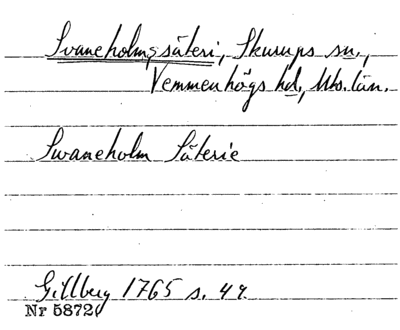 Svaneholms säteri, Skurups sn.,
Vemmenhögs hd, Mhs. län.
Swaneholm Säterie
Gillberg 1765 s. 49.
Nr 5872